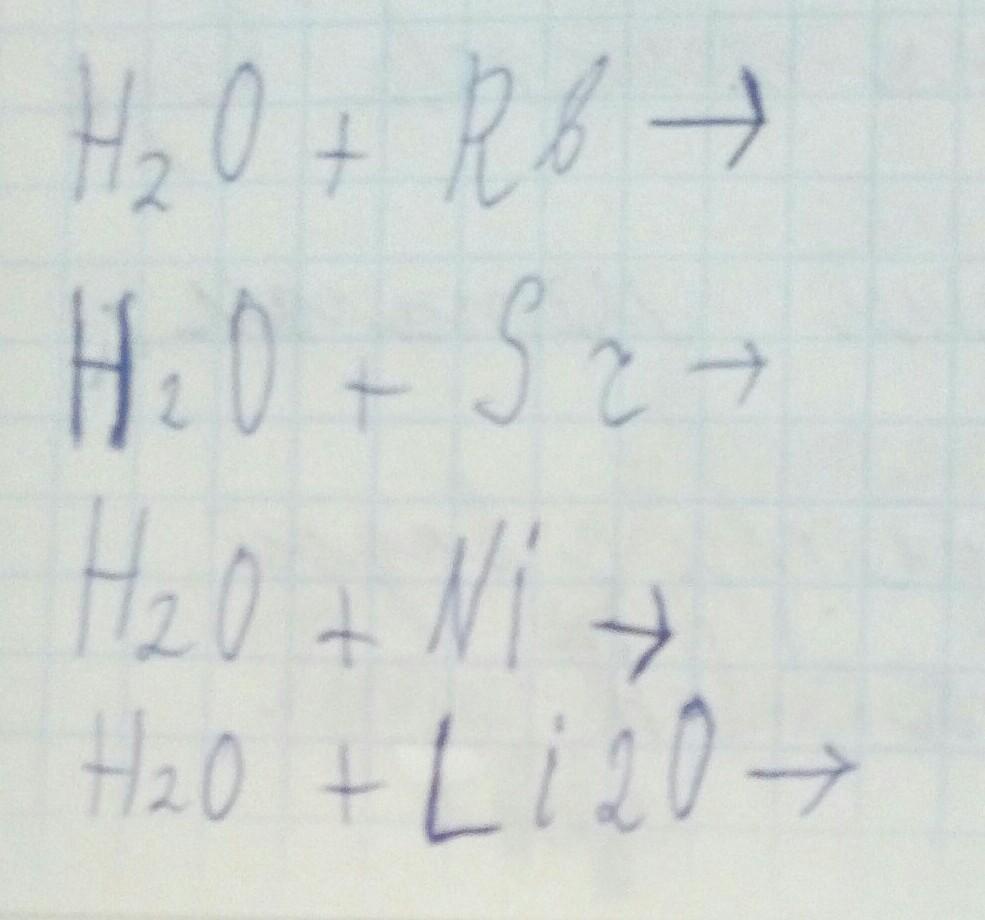 H₂O + Rb →
H₂O + Sr →
H₂O + Ni →
H₂O + Li₂O →